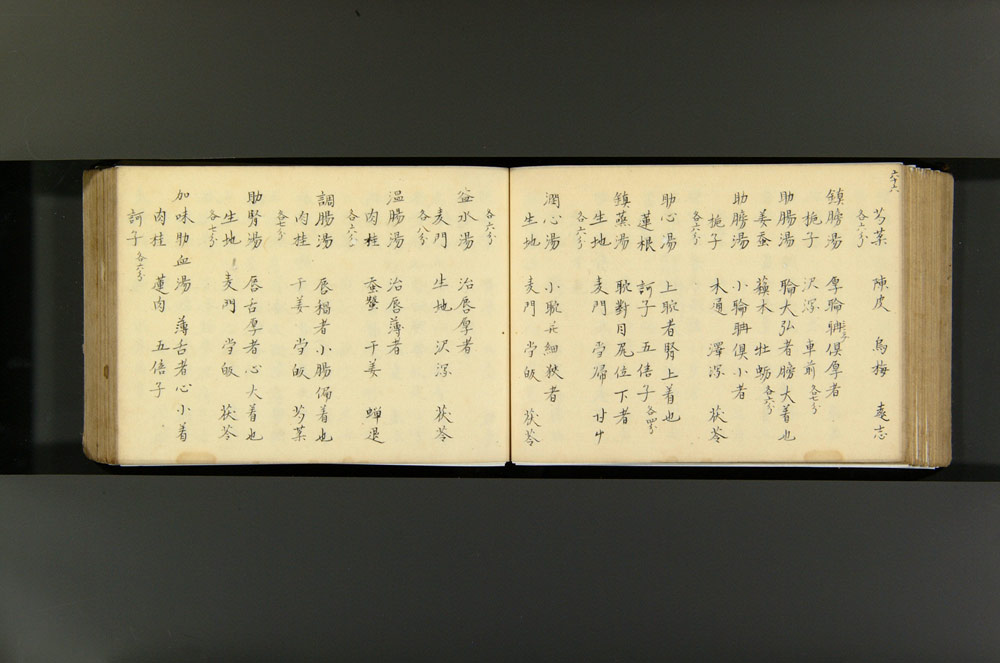 六十六
芍薬 陳皮 烏梅 遠志
各六分
鎮膀湯 厚腀䏔倶厚者
梔子 沢瀉 車前 各七分
助腸湯 腀大弘者膀大着也
姜蚕 蘓木 牡蛎 各六分
助膀湯 小腀䏔倶小者
梔子 木通 澤瀉 茯苓
各六分
助心湯 上眼者腎上着也
蓮根 訶子 五倍子 各四分
鎮蒸湯 眼對目尻位下者
生地 麦門 当帰 甘艸
各六分
潤心湯 小眼共細狹者
生地 麦門 当皈 茯苓
各六分
益水湯 治唇厚者
麦門 生地 沢瀉 茯苓
各八分
温腸湯 治唇薄者
肉桂 蚕蟹 干姜 蝉退
各六分
調腸湯 唇褐者小腸偏着也
肉桂 干姜 当皈 芍薬
各七分
助腎湯 唇古厚者心大着也
生地 麦門 当皈 茯苓
各七分
加味助血湯 薄舌者心小着
肉桂 蓮肉 五倍子
訶子 各六分